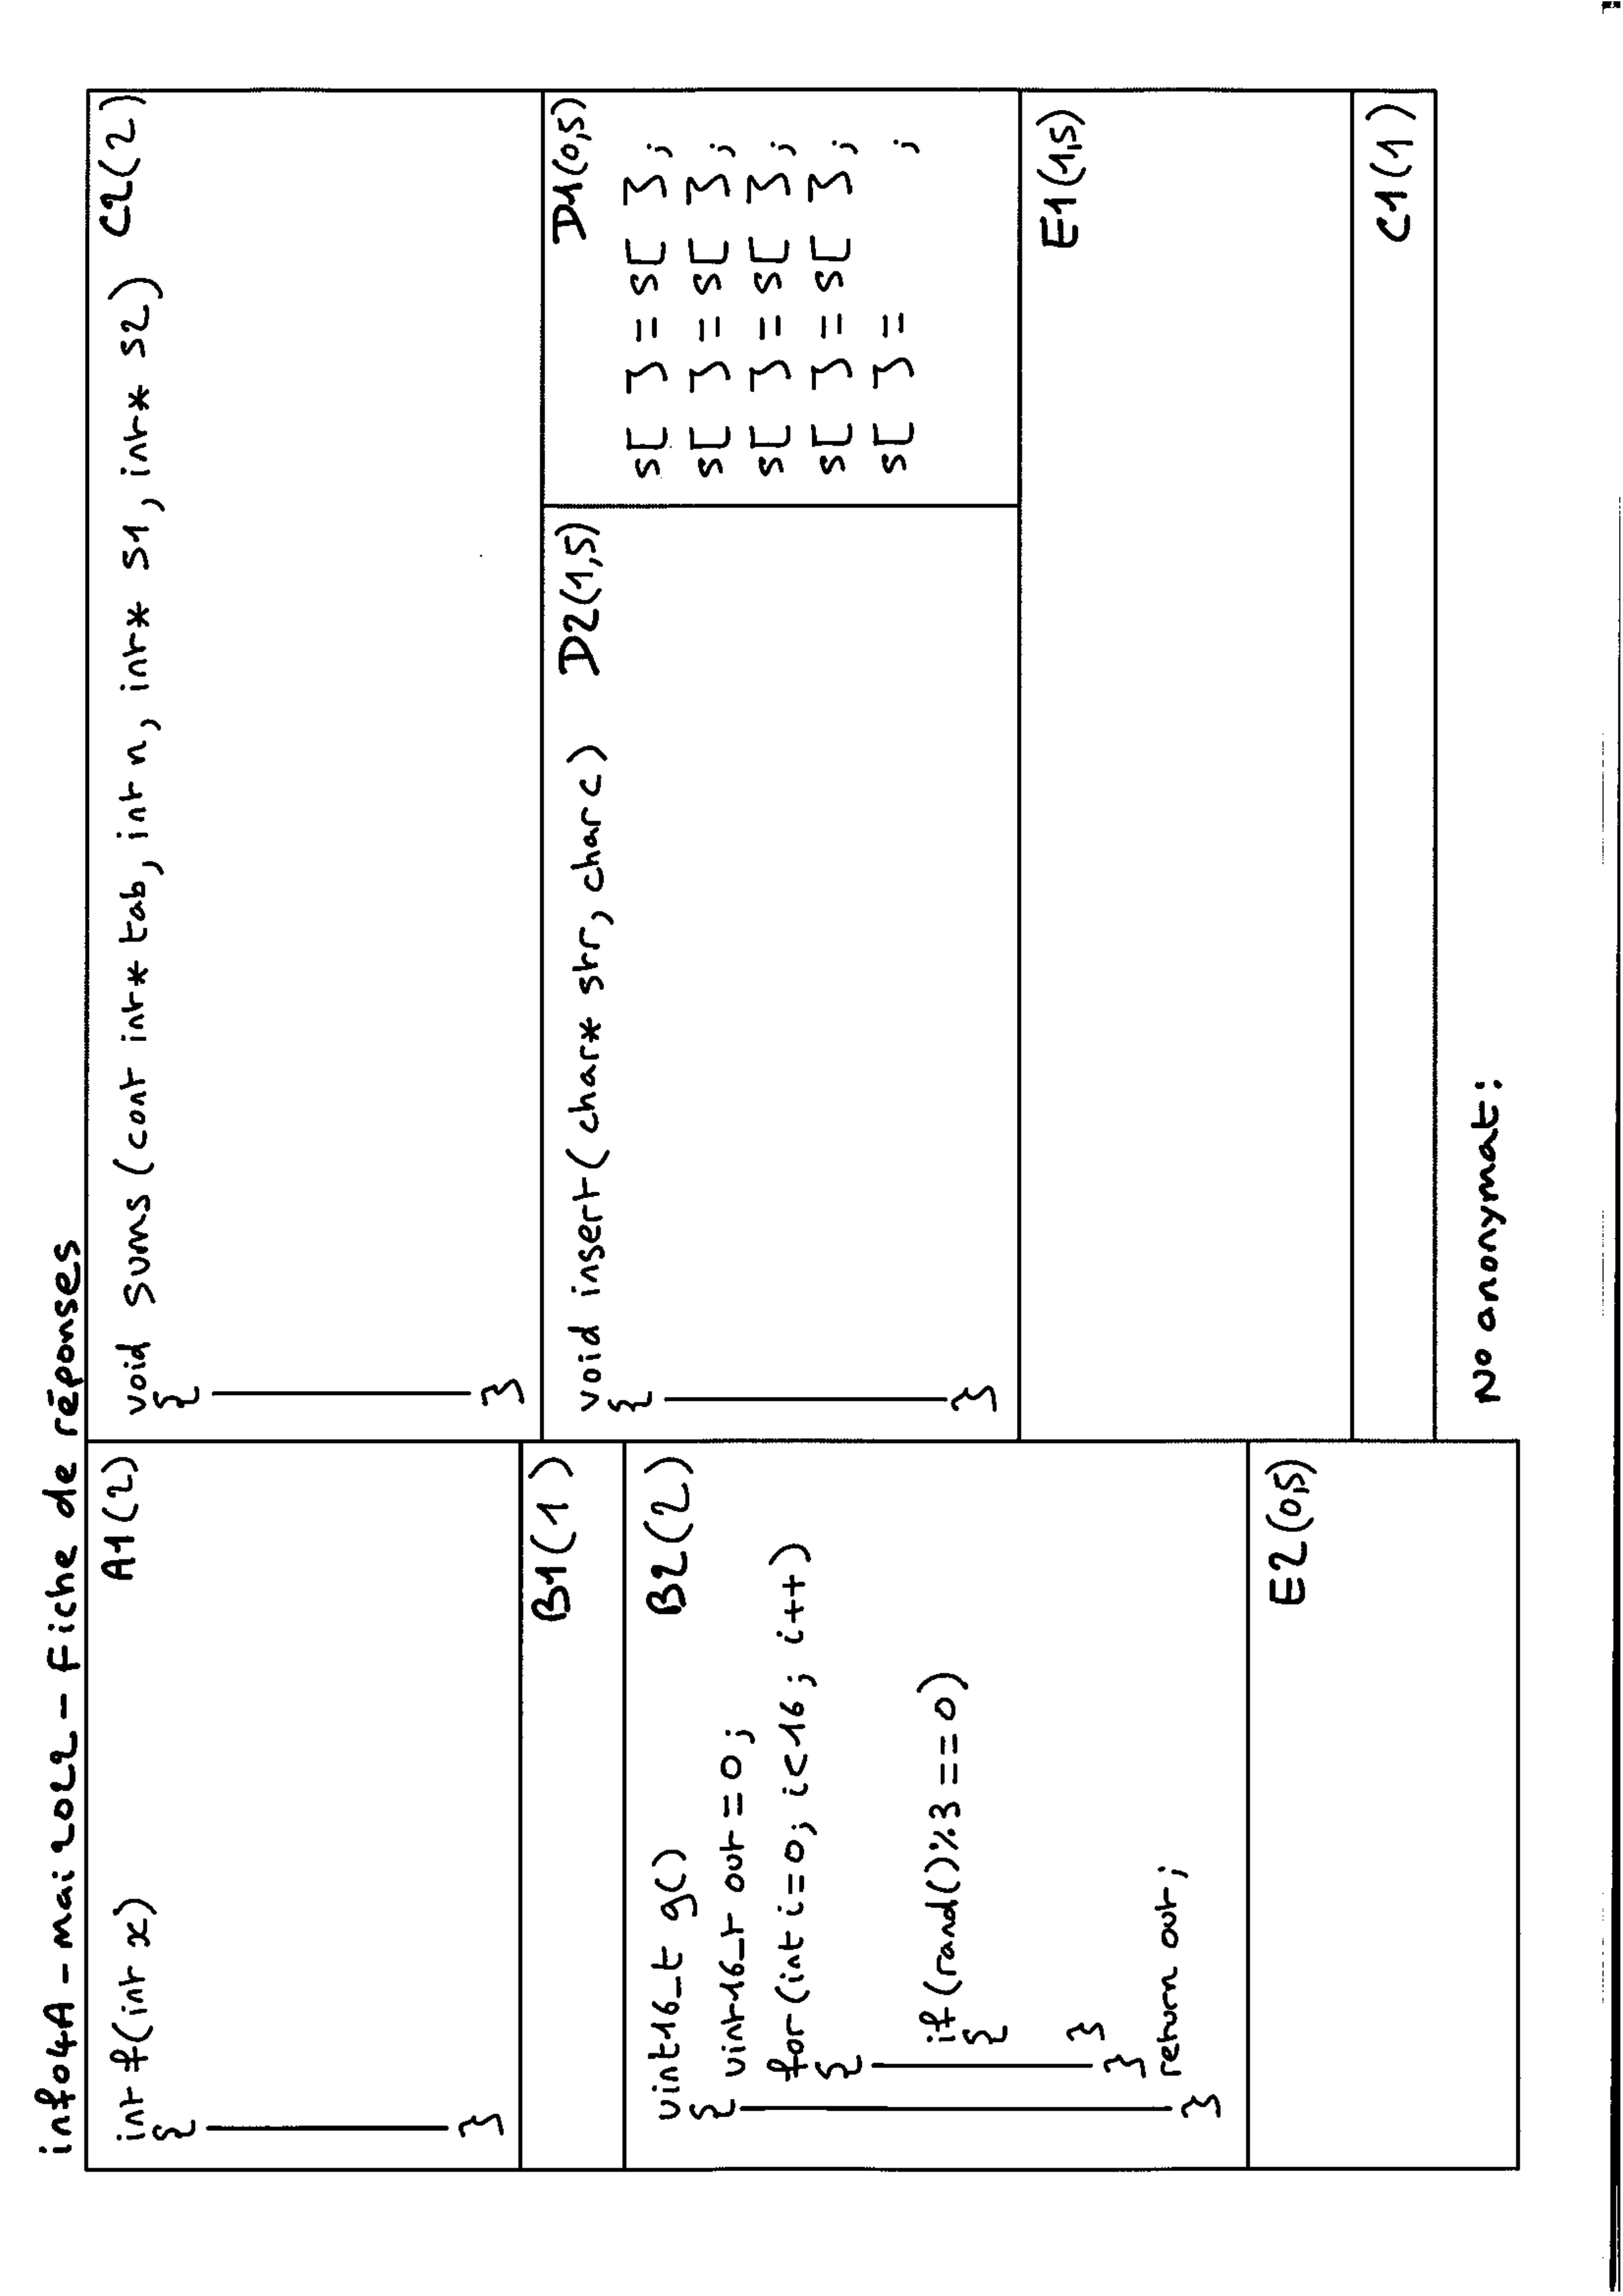 info4A - mai 2022 - Fiche de réponses
A1(2)
int f(int x)
{
}
B1(1)
B2(2)
uint16_t g()
{ uint16_t out = 0;
for(int i=0; i<16; i++)
{
if(rand()%3==0)
{
}
}
return out;
}
E2(0,5)
void sums(cont int* tab, int n, int* s1, int* s2) C2(2)
{
}
void insert(char* str, char c) D2(1,5)
{
}
D1(0,5)
s[ ] = s[ ];
s[ ] = s[ ];
s[ ] = s[ ];
s[ ] = s[ ];
s[ ] = ;
E1(1,5)
C1(1)
No anonymat: